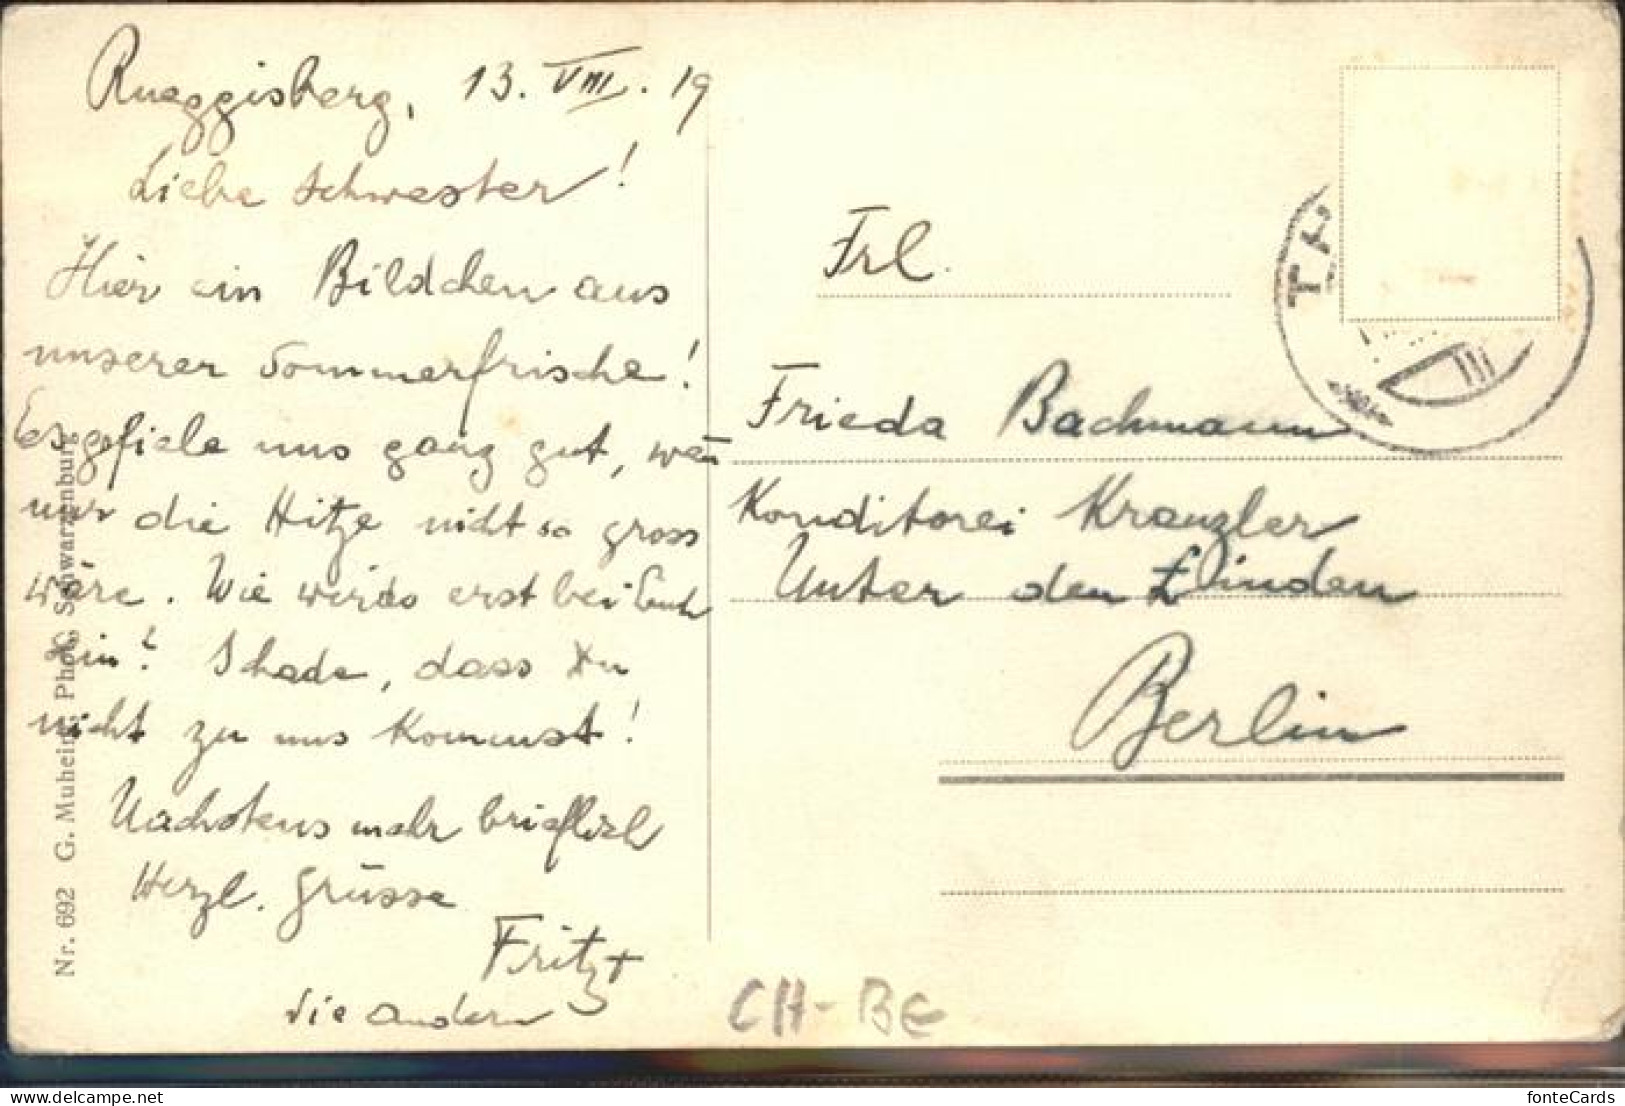 Rueggisberg, 13. VIII. 19
Liebe Schwester!
Hier ein Bildchen aus
unserer Sommerfrische!
Es gefiele uns ganz gut, wenn
nur die Hitze nicht so gross
wäre. Wie wirds erst bei Euch
sein? Schade, dass Du
nicht zu uns kommst!
Nächstens mehr brieflich
Herzl. Grüsse
Fritz +
die andern
Nr. 692 G. Muheim, Phot. Schwarzenburg
Frl.
Frieda Bachmann
Konditorei Kranzler
Unter den Linden
Berlin
CH-BE
delcampe.net
fonteCards